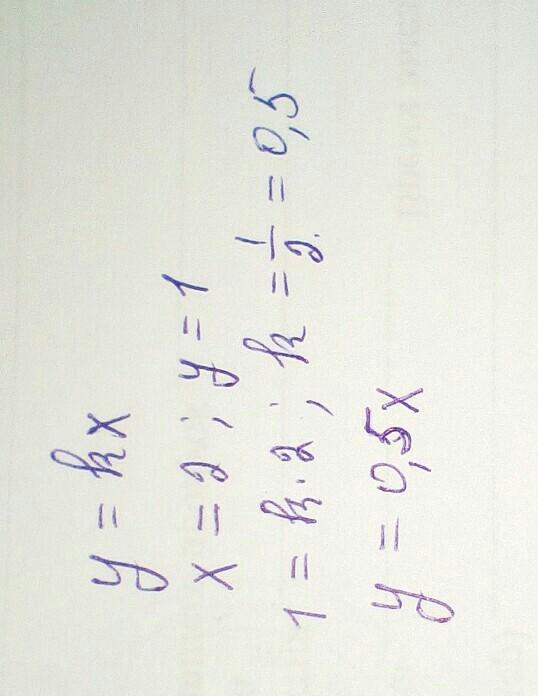 y = kx
x = 2 ; y = 1
1 = k · 2 ; k = 1/2 = 0,5
y = 0,5x